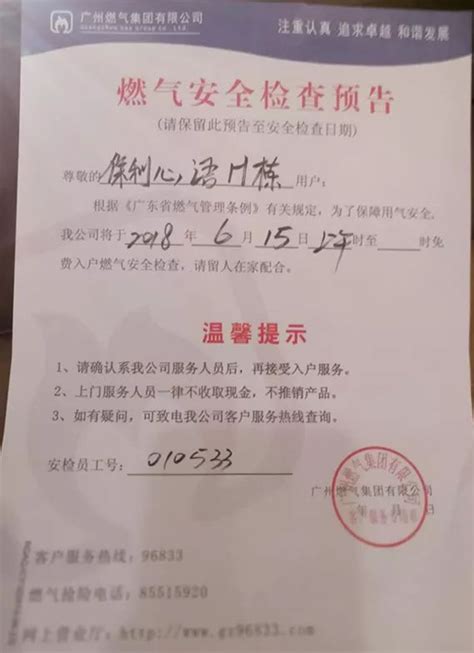 广州燃气集团有限公司
Guangzhou Gas Group Co., Ltd.
注重认真 追求卓越 和谐发展
燃气安全检查预告
(请保留此预告至安全检查日期)
尊敬的保利心语H栋用户:
根据《广东省燃气管理条例》有关规定,为了保障用气安全,
我公司将于2018年6月15日上午时至 时免
费入户燃气安全检查,请留人在家配合。
温馨提示
1、请确认系我公司服务人员后,再接受入户服务。
2、上门服务人员一律不收取现金,不推销产品。
3、如有疑问,可致电我公司客户服务热线查询。
安检员工号:010533
广州燃气集团有限公司
年 月 日
广州燃气集团有限公司
客户服务热线:96833
燃气抢险电话:85515920
网上营业厅:http://www.gz96833.com